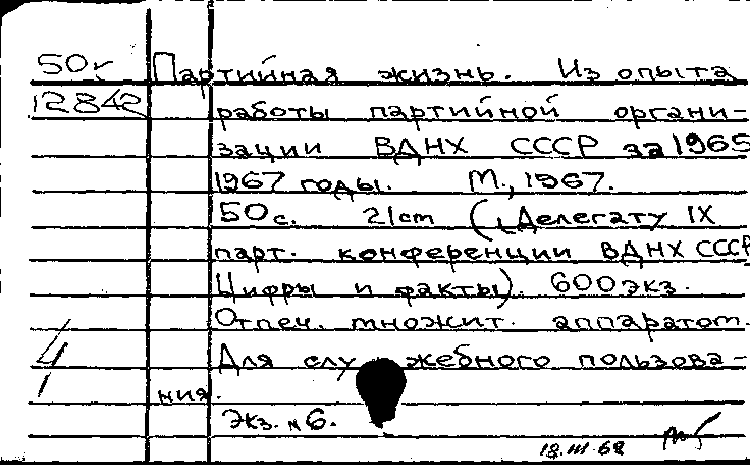 50г Партийная жизнь. Из опыта
12842 работы партийной органи-
зации ВДНХ СССР за 1965
1967 годы. М., 1967.
50 с. 21 cm (Делегату IX
парт. конференции ВДНХ СССР
Цифры и факты). 600 экз.
Отпеч. множит. аппаратом.
Для служебного пользова-
ния.
Экз. № 6.
18.III.68